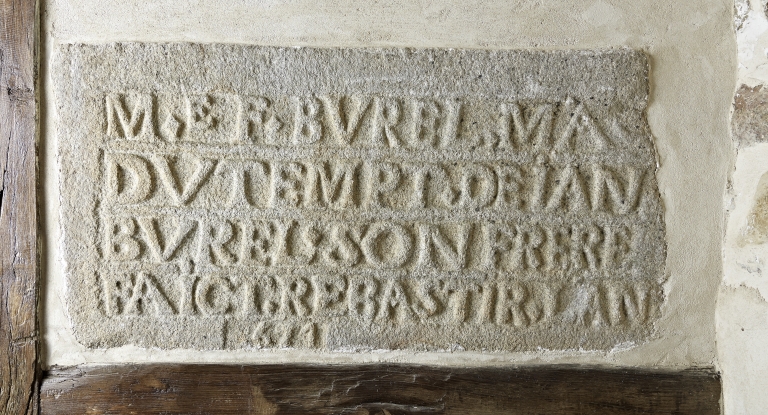 M·E·F·BVREL·MA
DV TEMPT·DE IAN
BVREL·SON FRERE
FAICT REBASTIR LAN